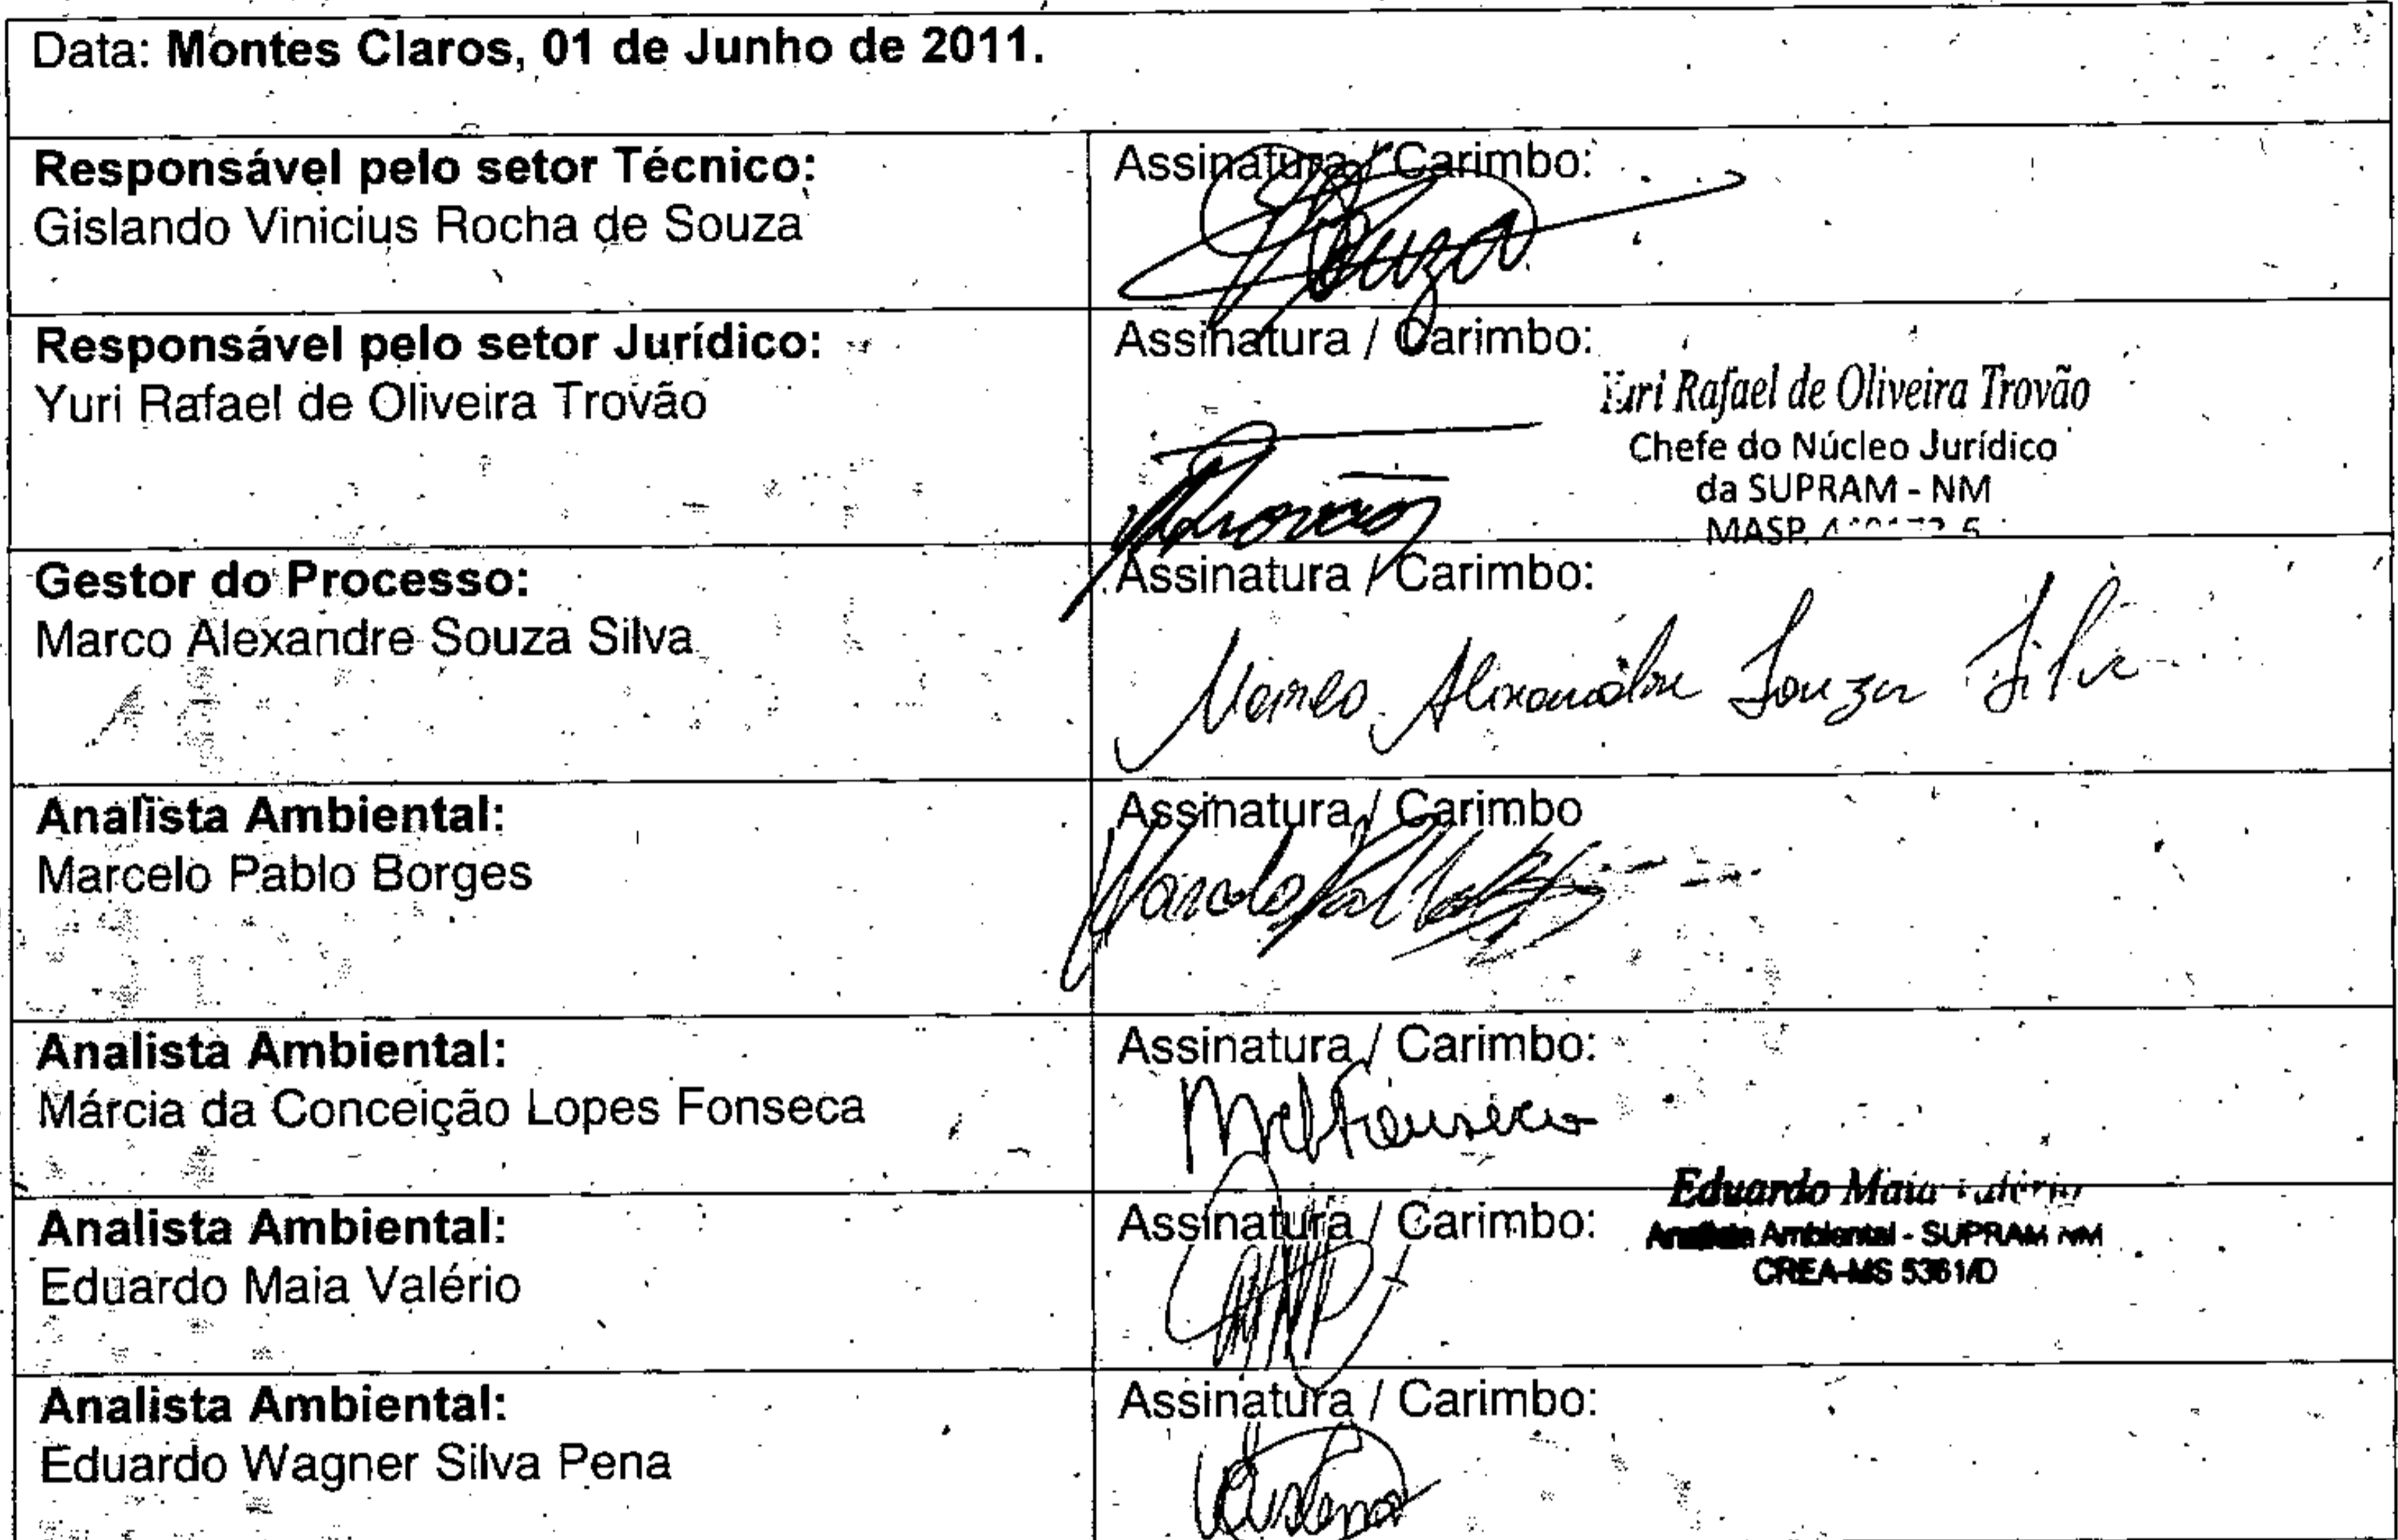 Data: Montes Claros, 01 de Junho de 2011.
Responsável pelo setor Técnico:
Gislando Vinicius Rocha de Souza
Assinatura / Carimbo:
Souza
Responsável pelo setor Jurídico:
Yuri Rafael de Oliveira Trovão
Assinatura / Carimbo:
Yuri Rafael de Oliveira Trovão
Chefe do Núcleo Jurídico
da SUPRAM - NM
MASP.
Gestor do Processo:
Marco Alexandre Souza Silva
Assinatura / Carimbo:
Marco Alexandre Souza Silva
Analista Ambiental:
Marcelo Pablo Borges
Assinatura / Carimbo
Analista Ambiental:
Márcia da Conceição Lopes Fonseca
Assinatura / Carimbo:
MclFonseca
Analista Ambiental:
Eduardo Maia Valério
Assinatura / Carimbo:
Eduardo Maia Valério
Analista Ambiental - SUPRAM NM
CREA-MS 5361/D
Analista Ambiental:
Eduardo Wagner Silva Pena
Assinatura / Carimbo: